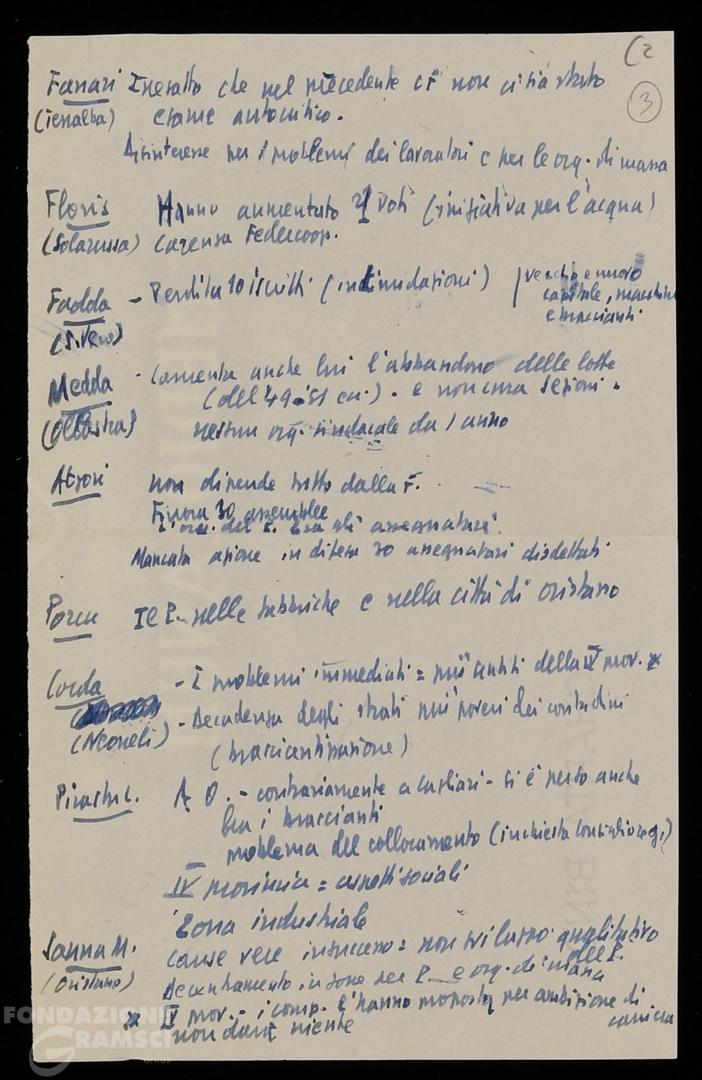 (2
3
Fanari Inesatto che nel precedente CF non ci sia stato
(Terralba) esame autocritico.
Disinteresse per i problemi dei lavoratori e per le org. di massa
Floris Hanno aumentato voti (iniziativa per l'acqua)
(Solarussa) carenza Federcoop.
Fadda - Perdita 10 iscritti (intimidazioni) | vecchio e nuovo
capitale, macchine
e braccianti
(S. Vero)
Medda - Lamenta anche lui l'abbandono delle lotte
(del '49-'51 ecc.) - e non cura sezioni.
(Ollastra) nessun org. sindacale da 1 anno
Atzori non dipende tutto dalla F.
Finora 30 assemblee
del P. tra gli assegnatari.
Mancata azione in difesa 20 assegnatari disdettati
Porcu Il P. nelle fabbriche e nella città di Oristano
Corda - I problemi immediati = più sentiti della IV prov. *
(Neoneli) - Decadenza degli strati più poveri dei contadini
(bracciantizzazione)
Pirastu L. A O. - contrariamente a Cagliari - si è perso anche
tra i braccianti
problema del collocamento (inchiesta Consiglio reg.)
IV provincia = aspetti sociali
Zona industriale
Sanna M. cause vere insuccesso = non sviluppo qualitativo
del P.
(Oristano) Decentramento in zone per P. e org. di massa
* IV prov. - i comp. l'hanno proposta per ambizione di
non darà niente
FONDAZIONE
GRAMSCI
onlus